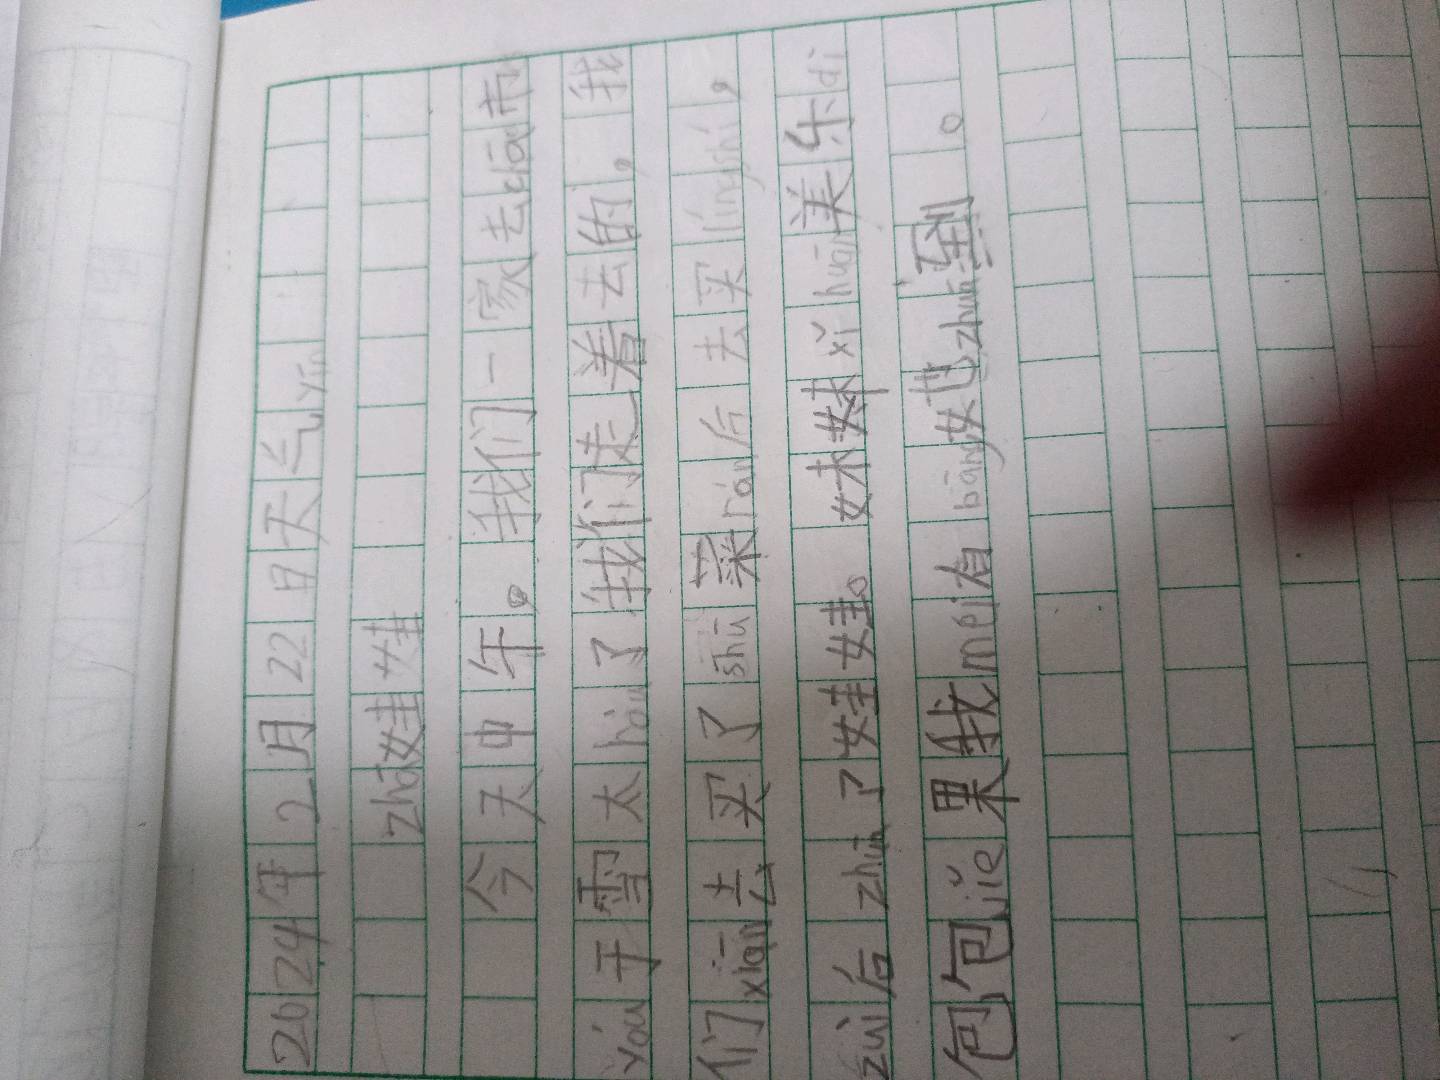 2024年2月22日天气yīn
zhuā娃娃
今天中午。我们一家去chāo市
yóu于雪太hòu了我们走着去的,我
们xiān去买了shū菜rán后去买língshí,
zuì后zhuā了娃娃。妹妹xǐhuān美乐di
包包jiě果我méi有bāng她zhuā到。